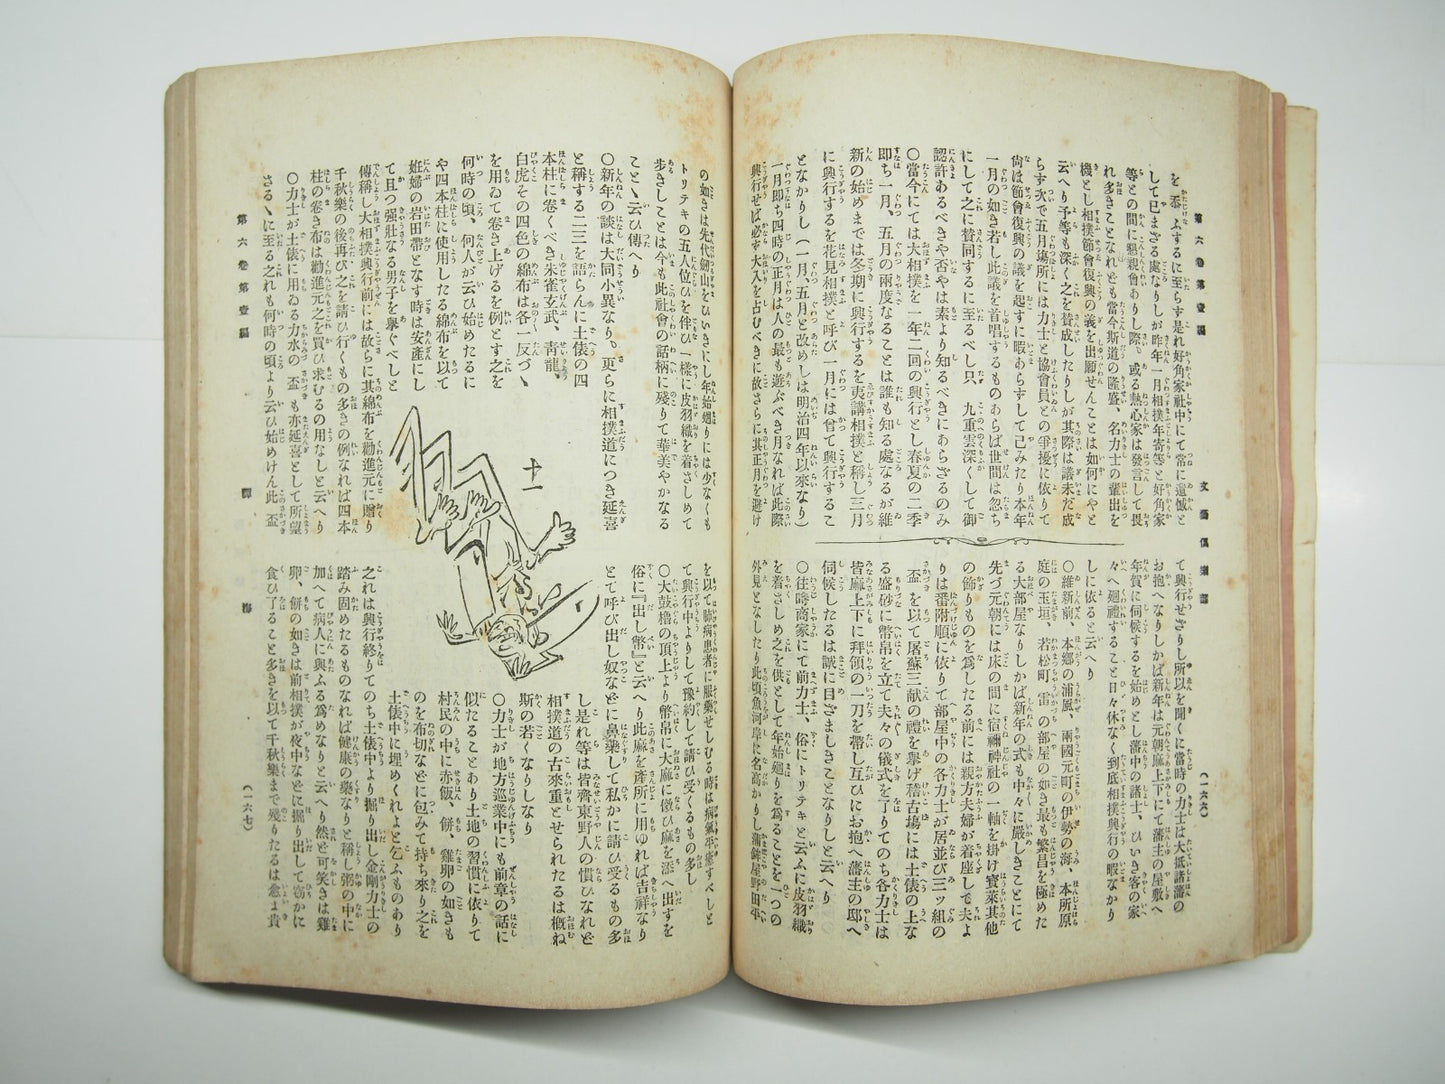 第六卷第壹編
文藝倶樂部
(一六六)
を忝ふするに至らす是れ好角家社中にて常に遺憾と
して已まざる處なりしが昨年一月相撲年寄等と好角家
等との間に懇親會ありし際、或る熱心家は發言して畏
れ多きことなれども當今斯道の隆盛、名力士の輩出を
機とし相撲節會復興の義を出願せんことは如何にやと
云へり予等も深く之を賛成したりしが其際は議未だ成
らす次で五月塲所には力士と協會員との爭擾に依りて
尙は節會復興の議を起すに暇あらずして已みたり本年
一月の如き若し此議を首唱するものあらば世間は忽ち
にして之に賛同するに至るべし只、九重雲深くして御
認許あるべきや否やは素より知るべきにあらざるのみ
〇當今にては大相撲を一年二回の興行とし春夏の二季
即ち一月、五月の兩度なることは誰も知る處なるが維
新の始めまでは冬期に興行するを夷講相撲と稱し三月
に興行するを花見相撲と呼び一月には曾て興行するこ
となかりし(一月、五月と改めしは明治四年以來なり)
一月即ち四時の正月は人の最も遊ぶべき月なれば此際
興行せば必す大入を占むべきに故さらに其正月を避け
て興行せざりし所以を聞くに當時の力士は大抵諸藩の
お抱へなりしかば新年は元朝麻上下にて藩主の屋敷へ
年賀に伺候するを始めとし藩中の諸士、ひいき客の家
々へ廻禮すること日々休なく到底相撲興行の暇なかり
しに依ると云へり
〇維新前、本鄕の浦風、兩國元町の伊勢の海、本所原
庭の玉垣、若松町 雷 の部屋の如き最も繁昌を極めた
る大部屋なりしかば新年の式も中々に嚴しきことにて
先づ元朝には床の間に宿禰神社の一軸を掛け寶萊其他
の飾りものを爲したる前には親方夫婦が着座して夫よ
りは番附順に依りて部屋中の各力士が居並び三ッ組の
盃 を以て屠蘇三献の禮を擧げ稽古場には土俵の上な
る盛砂に幣帛を立て夫々の儀式を了りてのち各力士は
皆麻上下に拜領の一刀を帶し互ひにお抱へ藩主の邸へ
伺候したるは誠に目ざましきことなりしと云へり
〇徃時商家にて前力士、俗にトリテキと云ふに皮羽織
を着さしめ之を供として年始廻りを爲ることを一つの
外見となしたり此頃魚河岸に名高かりし蒲鉾屋野田平
の如きは先代劒山をひいきにし年始廻りには少なくも
トリテキの五人位ひを伴ひ一樣に皮羽織を着さしめて
歩きしことは今も此社會の話柄に殘りて華美やかなる
ことゝ云ひ傳へり
〇新年の談は大同小異なり、更らに相撲道につき延喜
と稱する二三を語らんに土俵の四
本柱に卷くべき朱雀玄武、靑龍、
白虎その四色の綿布は各一反づゝ
を用ゐて卷き上げるを例とす之を
何時の頃、何人が云ひ始めたるに
や四本柱に使用したる綿布を以て
姙婦の岩田帶となす時は安產にし
て且つ强壯なる男子を擧ぐべしと
傳稱し大相撲興行前には故らに其綿布を勸進元に贈り
千秋樂の後再び之を請ひ行くもの多きの例なれば四本
柱の卷き布は勸進元之を買ひ求むるの用なしと云へり
〇力士が土俵に用ゐる力水の 盃 も亦延喜として所望
さるゝに至る之れも何時の頃より云ひ始めけん此盃
十一
を以て肺病患者に服藥せしむる時は病氣平癒すべしと
て興行中よりして豫約して請ひ受くるもの多し
〇大鼓櫓の頂上より幣帛に大麻に倣ひ麻を添へ出すを
俗に『出し幣』と云へり此麻を產所に用ゆれば吉祥なり
とて呼び出し奴などに鼻藥して私かに請ひ受るもの多
し是れ等は皆齊東野人の慣ひなれど
相撲道の古來重とせられたるは概ね
斯の若くなりしなり
〇力士が地方巡業中にも前章の話に
似たることあり土地の習慣に依りて
村民の中に赤飯、餅、雞卵の如きも
のを布切などに包みて持ち來り之を
土俵中に埋めくれよと乞ふものあり
之れは興行終りてのち土俵中より掘り出し金剛力士の
踏み固めたるものなれば健康の藥なりと稱し粥の中に
加へて病人に與ふる爲めなりと云へり然ど可笑きは雞
卵、餅の如きは前相撲が夜中などに掘り出して窃かに
食ひ了ること多きを以て千秋樂まで殘りたるは愈よ貴
第六卷第壹編
(一六七)